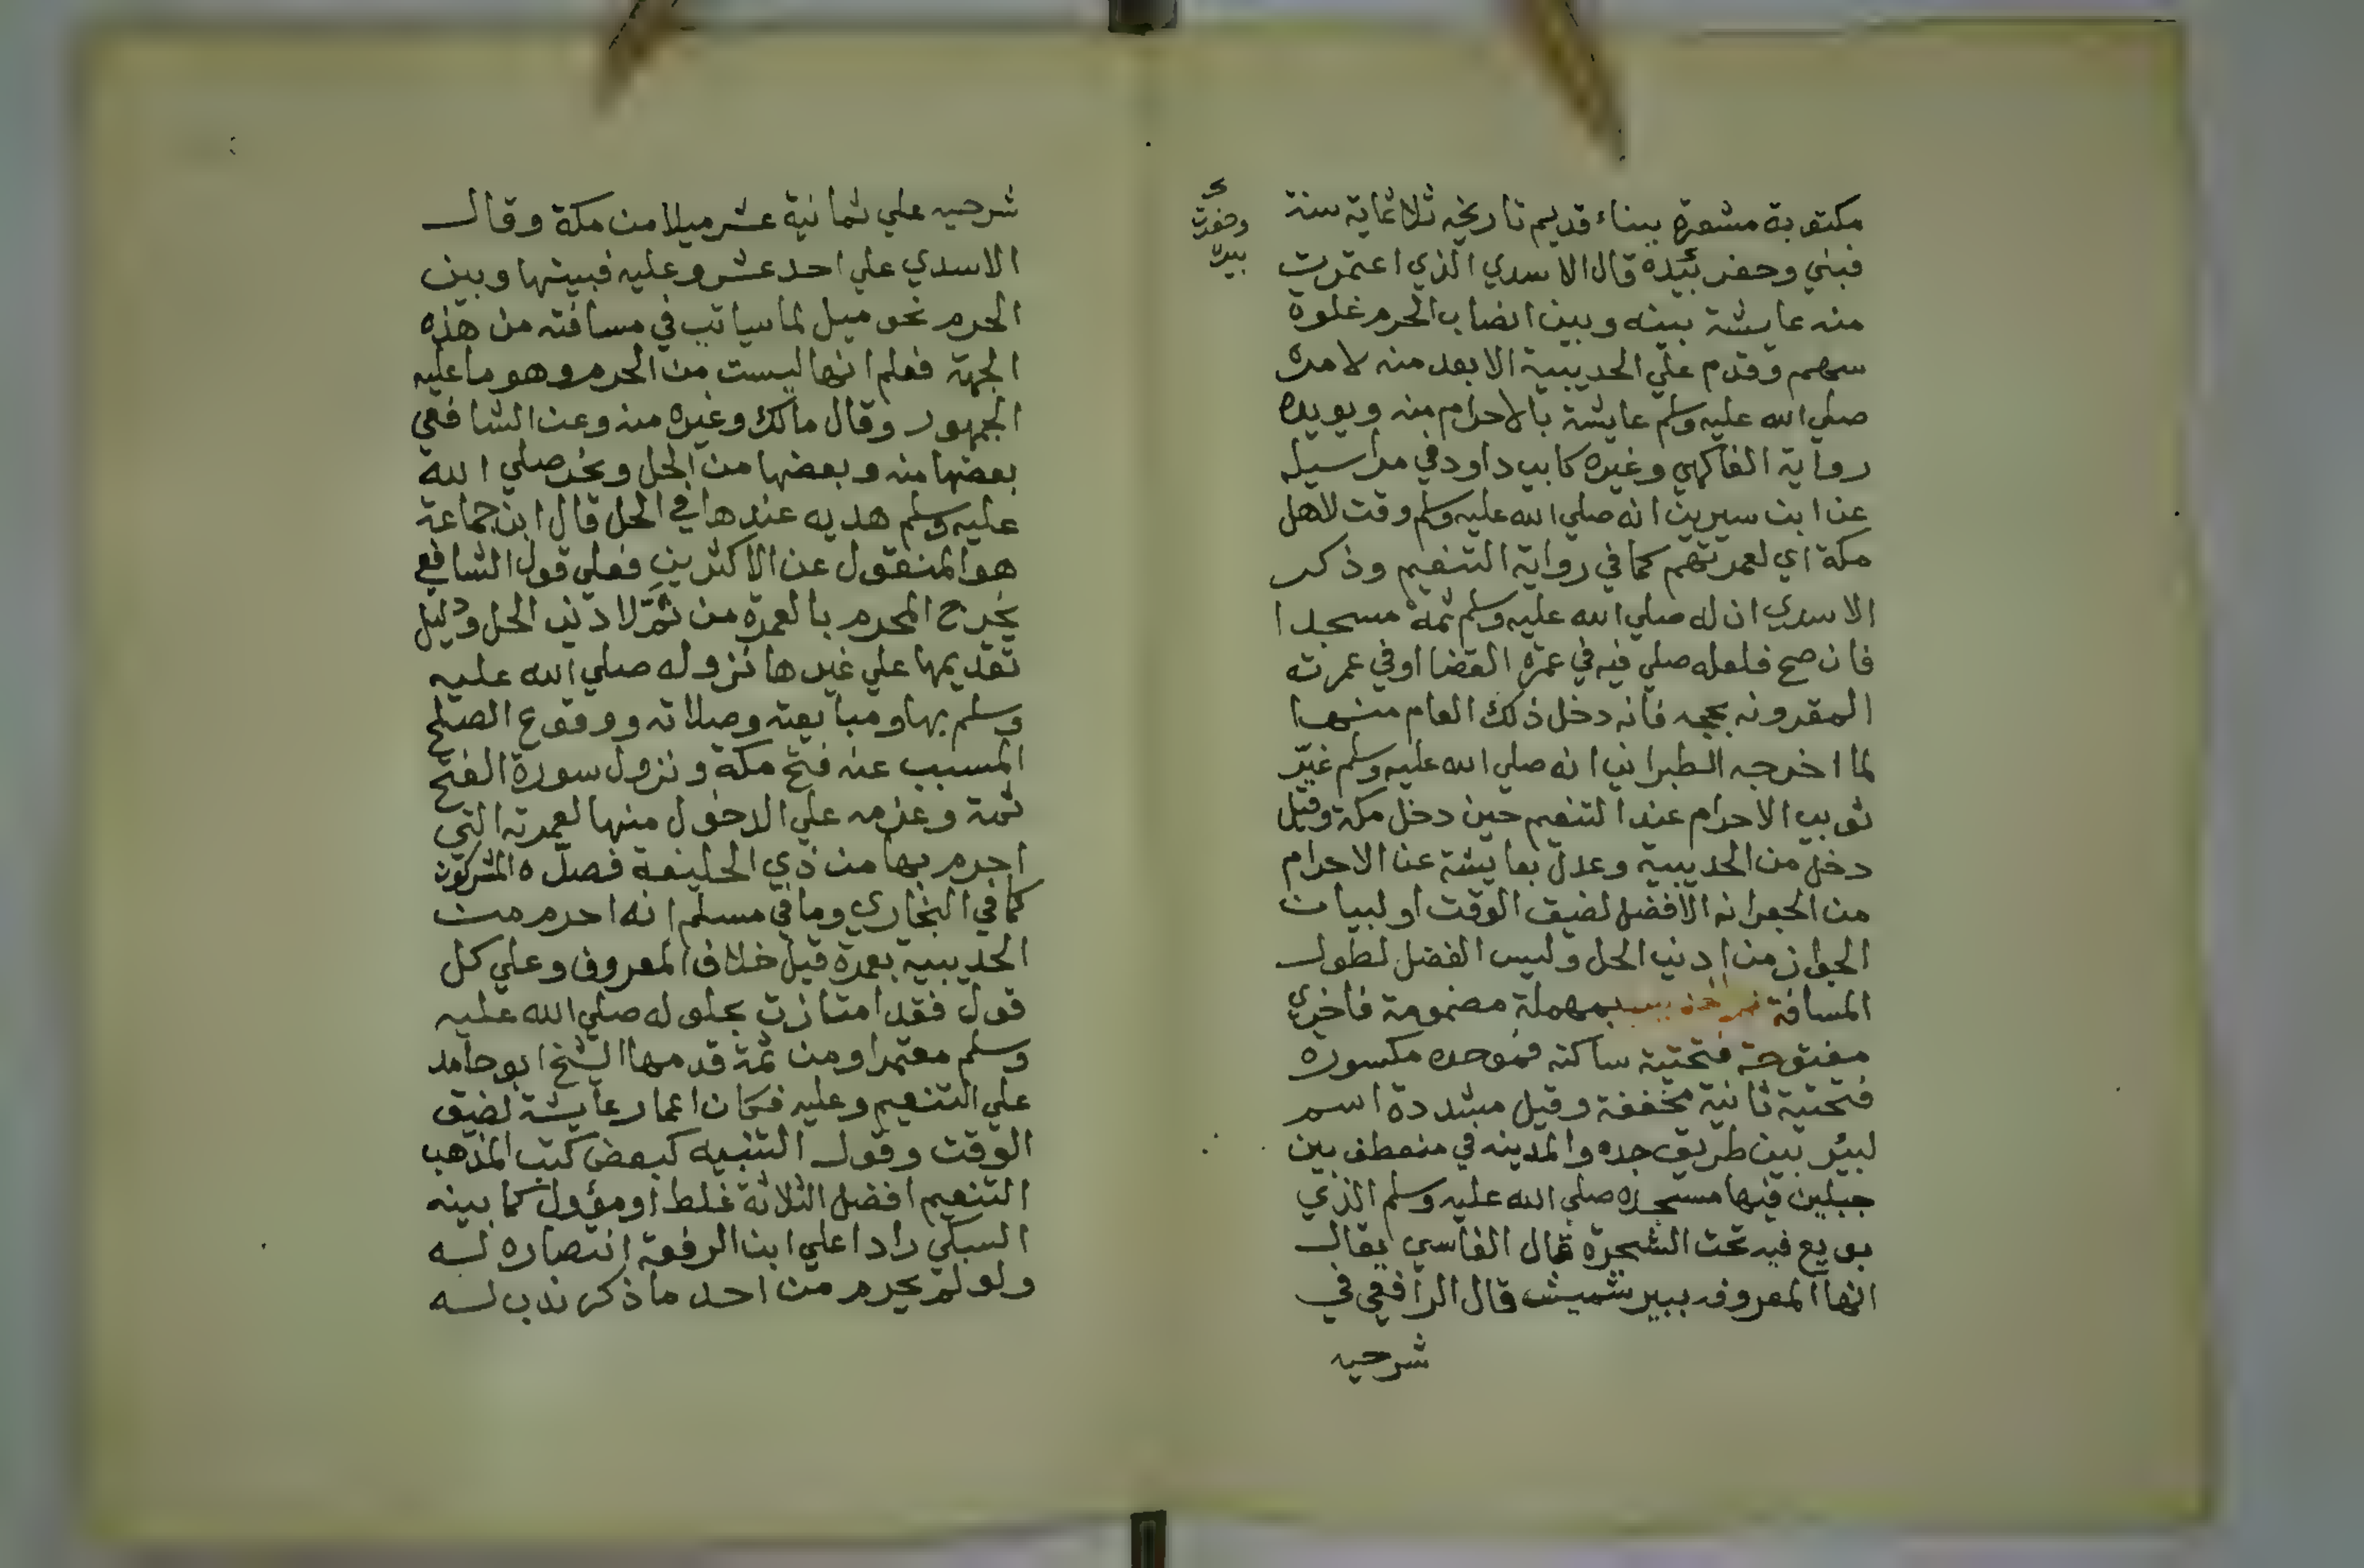 مكتوبة مشعرة ببناء قديم تاريخه ثلاثماية سنة
فبني وحفر بئيده قال الاسدي الذي اعتمرت
منه عايشة بينه وبين انصاب الحرم غلوة
سهم وقدم علي الحديبية الابعد منه لامره
صلي الله عليه وسلم عايشة بالاحرام منه ويويده
رواية الفاكهي وغيره كابي داود في مراسيله
عن ابن سيرين انه صلي الله عليه وسلم وقت لاهل
مكة اي لعمرتهم كما في رواية التنعيم وذكر
الاسدي ان له صلي الله عليه وسلم ثمة مسجدا
فان صح فلعله صلي فيه في عمرة القضا او في عمرته
المقرونه بحجه فانه دخل ذلك العام منها
لما اخرجه الطبراني انه صلي الله عليه وسلم غيّر
ثوبي الاحرام عند التنعيم حين دخل مكة وقيل
دخل من الحديبية وعدل بعايشة عن الاحرام
من الجعرانه الافضل لضيق الوقت او لبيان
الجواز من ادني الحل وليس الفضل لطول
المسافة بمهملة مضمومة فاخري
مفتوحة فتحتية ساكنه فموحده مكسوره
فتحتية ثانية مخففة وقيل مشددة اسم
لبئر بين طريق جده والمدينه في منعطف بين
جبلين فيها مسجده صلي الله عليه وسلم الذي
بويع فيه تحت الشجرة قال الفاسي يقال
انها المعروف ببير شميش قال الرافعي في
شرحيه
وحفرت
بير
شرحيه علي ثمانية عشر ميلا من مكة وقال
الاسدي علي احد عشر وعليه فبينها وبين
الحرم نحو ميل لما سياتي في مسافته من هذه
الجهة فعلم انها ليست من الحرم وهو ما عليه
الجمهور وقال مالك وغيره منه وعن الشافعي
بعضها منه وبعضها من الحل ونحر صلي الله
عليه وسلم هديه عندها في الحل قال ابن جماعة
هو المنقول عن الاكثرين فعلي قول الشافعي
يخرج المحرم بالعمرة من ثمّ لادني الحل ودليل
تقديمها علي غيرها نزوله صلي الله عليه
وسلم بها ومبايعته وصلاته ووقوع الصلح
المسبب عنه فتح مكة ونزول سورة الفتح
ثمة وعزمه علي الدخول منها لعمرته التي
احرم بها من ذي الحليفة فصدّه المشركون
كما في البخاري وما في مسلم انه احرم من
الحديبية بعمرة قيل خلاف المعروف وعلي كل
قول فقد امتازت بحلوله صلي الله عليه
وسلم معتمرا ومن ثمة قدمها الشيخ ابو حامد
علي التنعيم وعليه فكان اعمار عايشة لضيق
الوقت وقول التنبيه كبعض كتب المذهب
التنعيم افضل الثلاثة غلط او مؤول كما بينه
السبكي رادا علي ابن الرفعة انتصاره له
ولو لم يحرم من احد ما ذكر ندب له